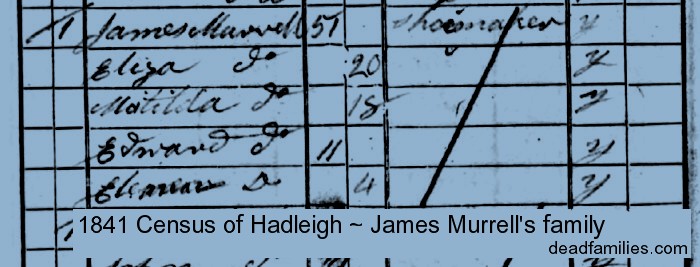 1 James Murrell 51 Shoemaker y
Eliza do 20 y
Matilda do 18 y
Edward do 11 y
Eleanor Do 4 y
1841 Census of Hadleigh ~ James Murrell's family
deadfamilies.com